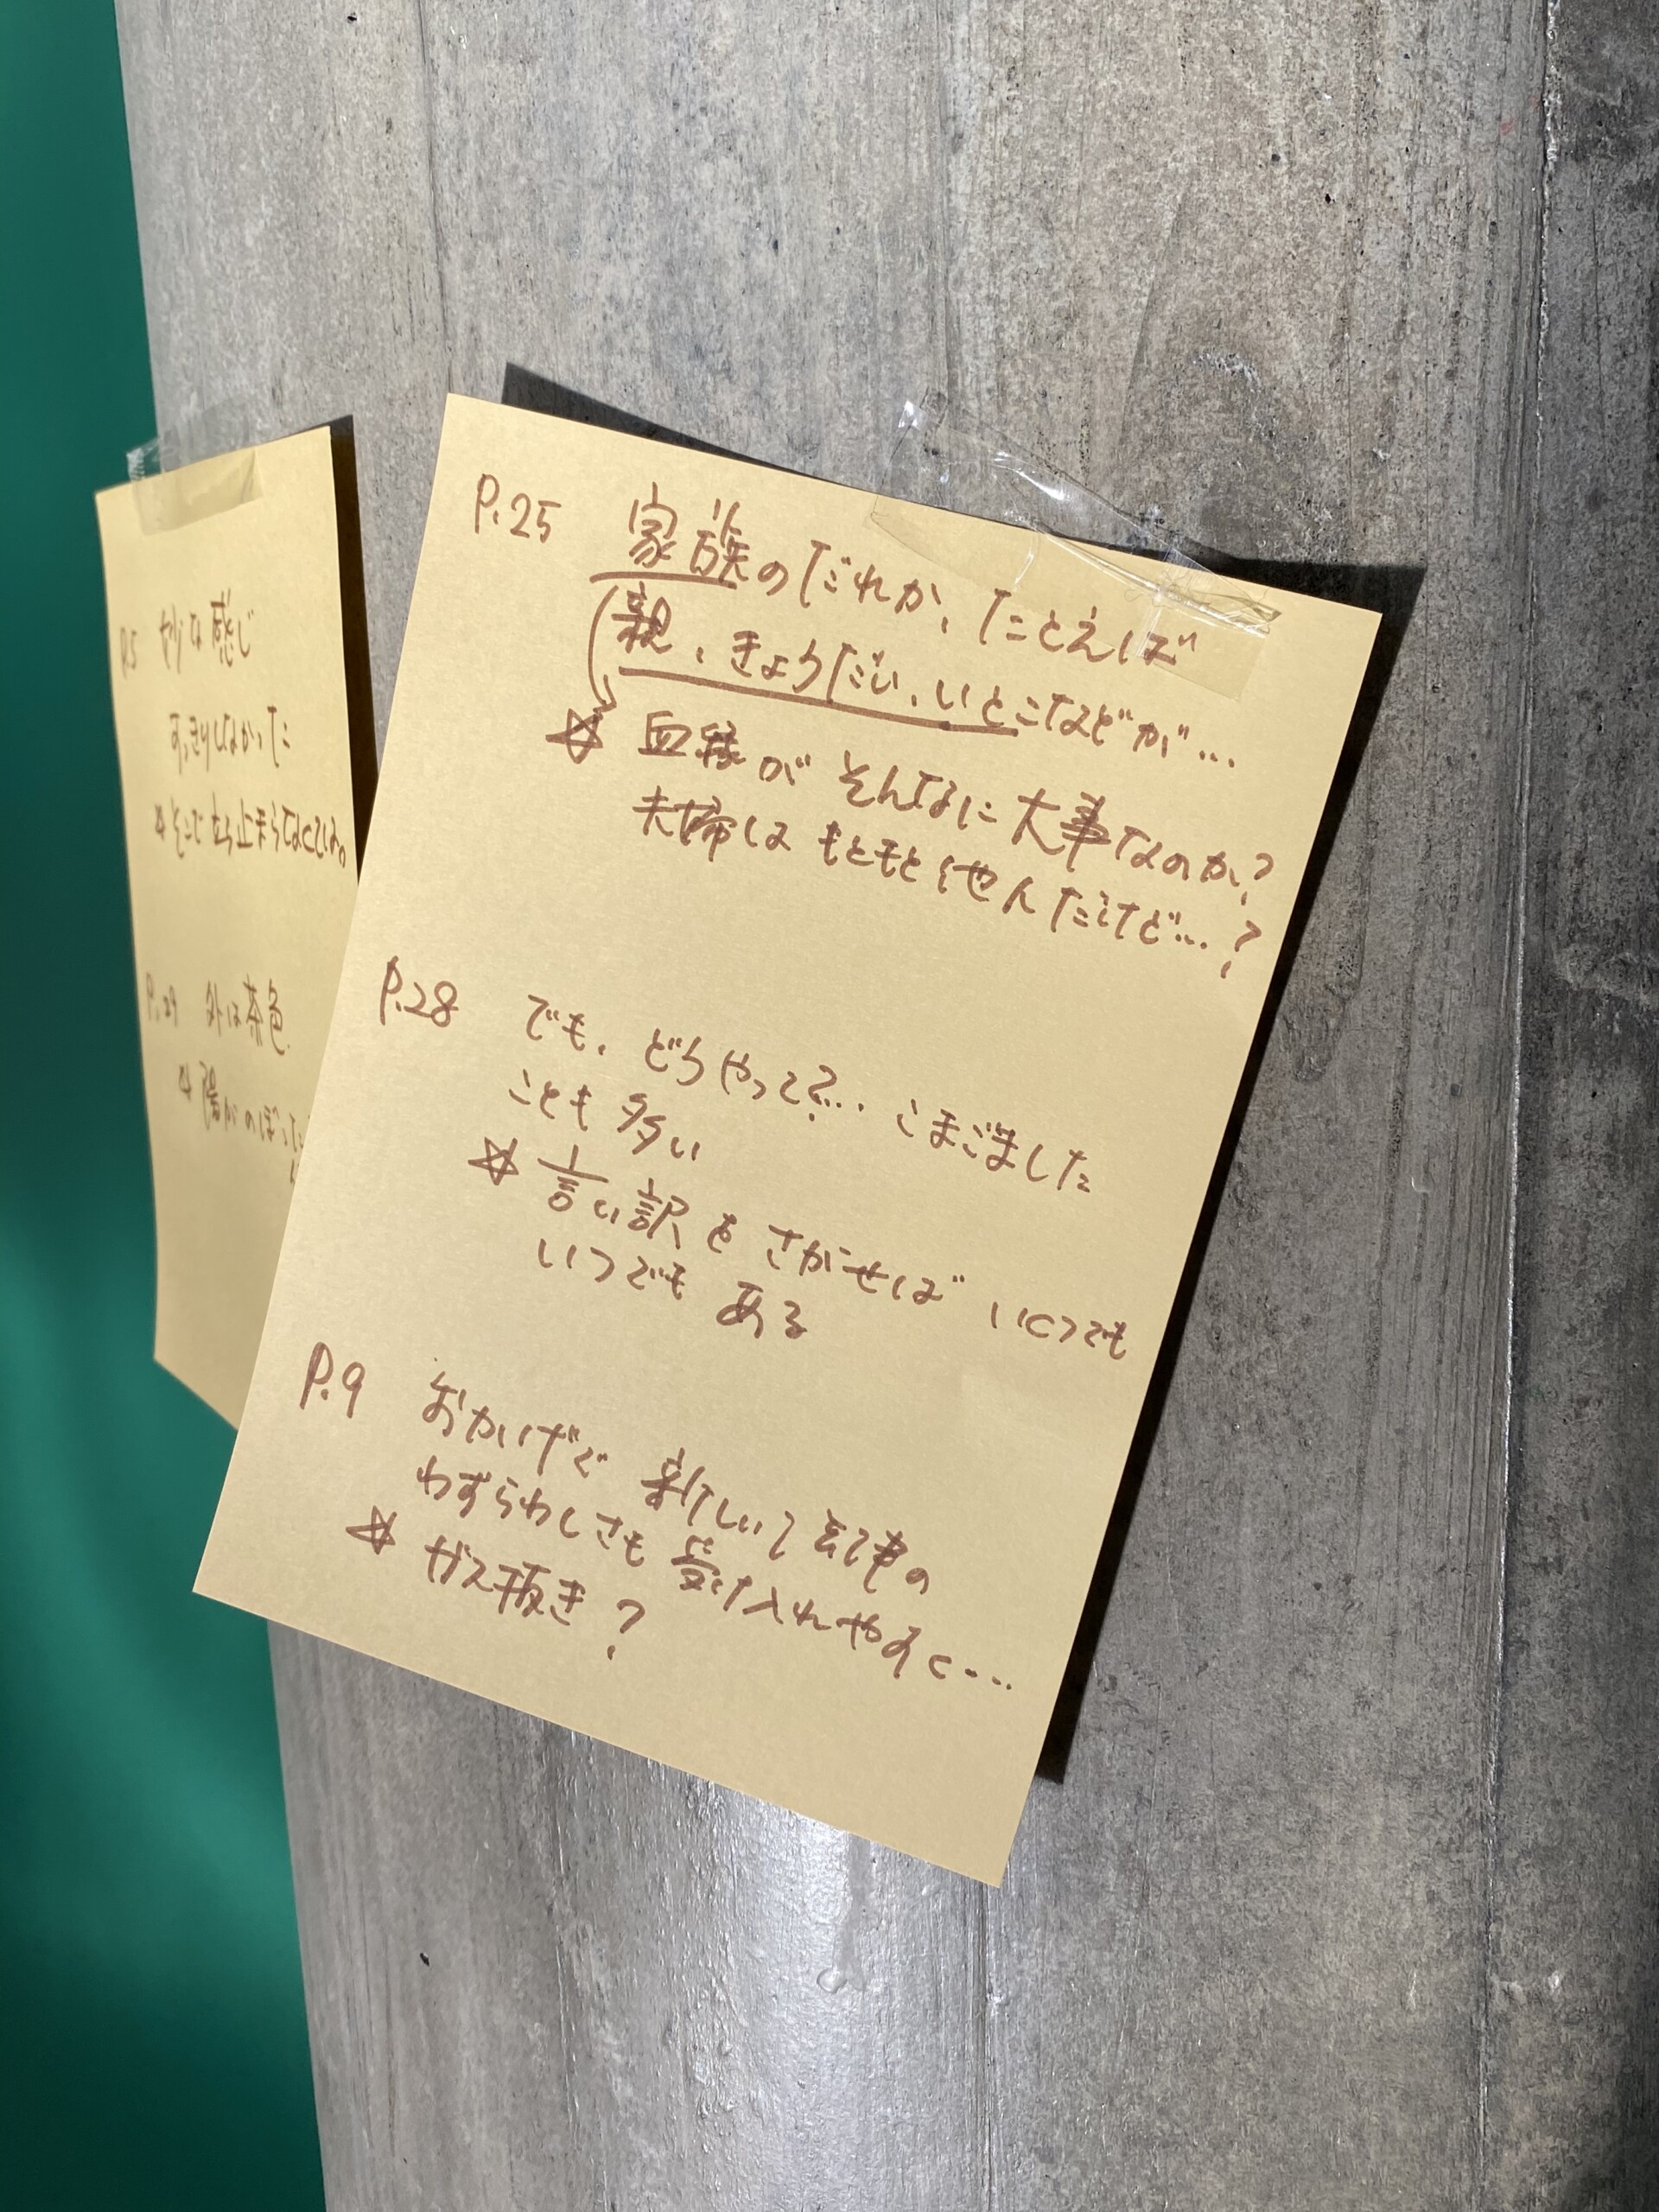 P.5 妙な感じ
すっきりしなかった
☆そこで立ち止まらなくては。
P.29 外は茶色
☆陽がのぼった
P.25 家族のだれか、たとえば
親、きょうだい、いとこなどが…
☆ 血縁がそんなに大事なのか?
夫婦はもともと他人だけど…?
P.28 でも、どうやって?… こまごました
ことも多い
☆ 言い訳をさがせば いくつでも
いつでも ある
P.9 おかげで 新しい
わずらわしさも 受け入れやすく…
☆ ガス抜き?